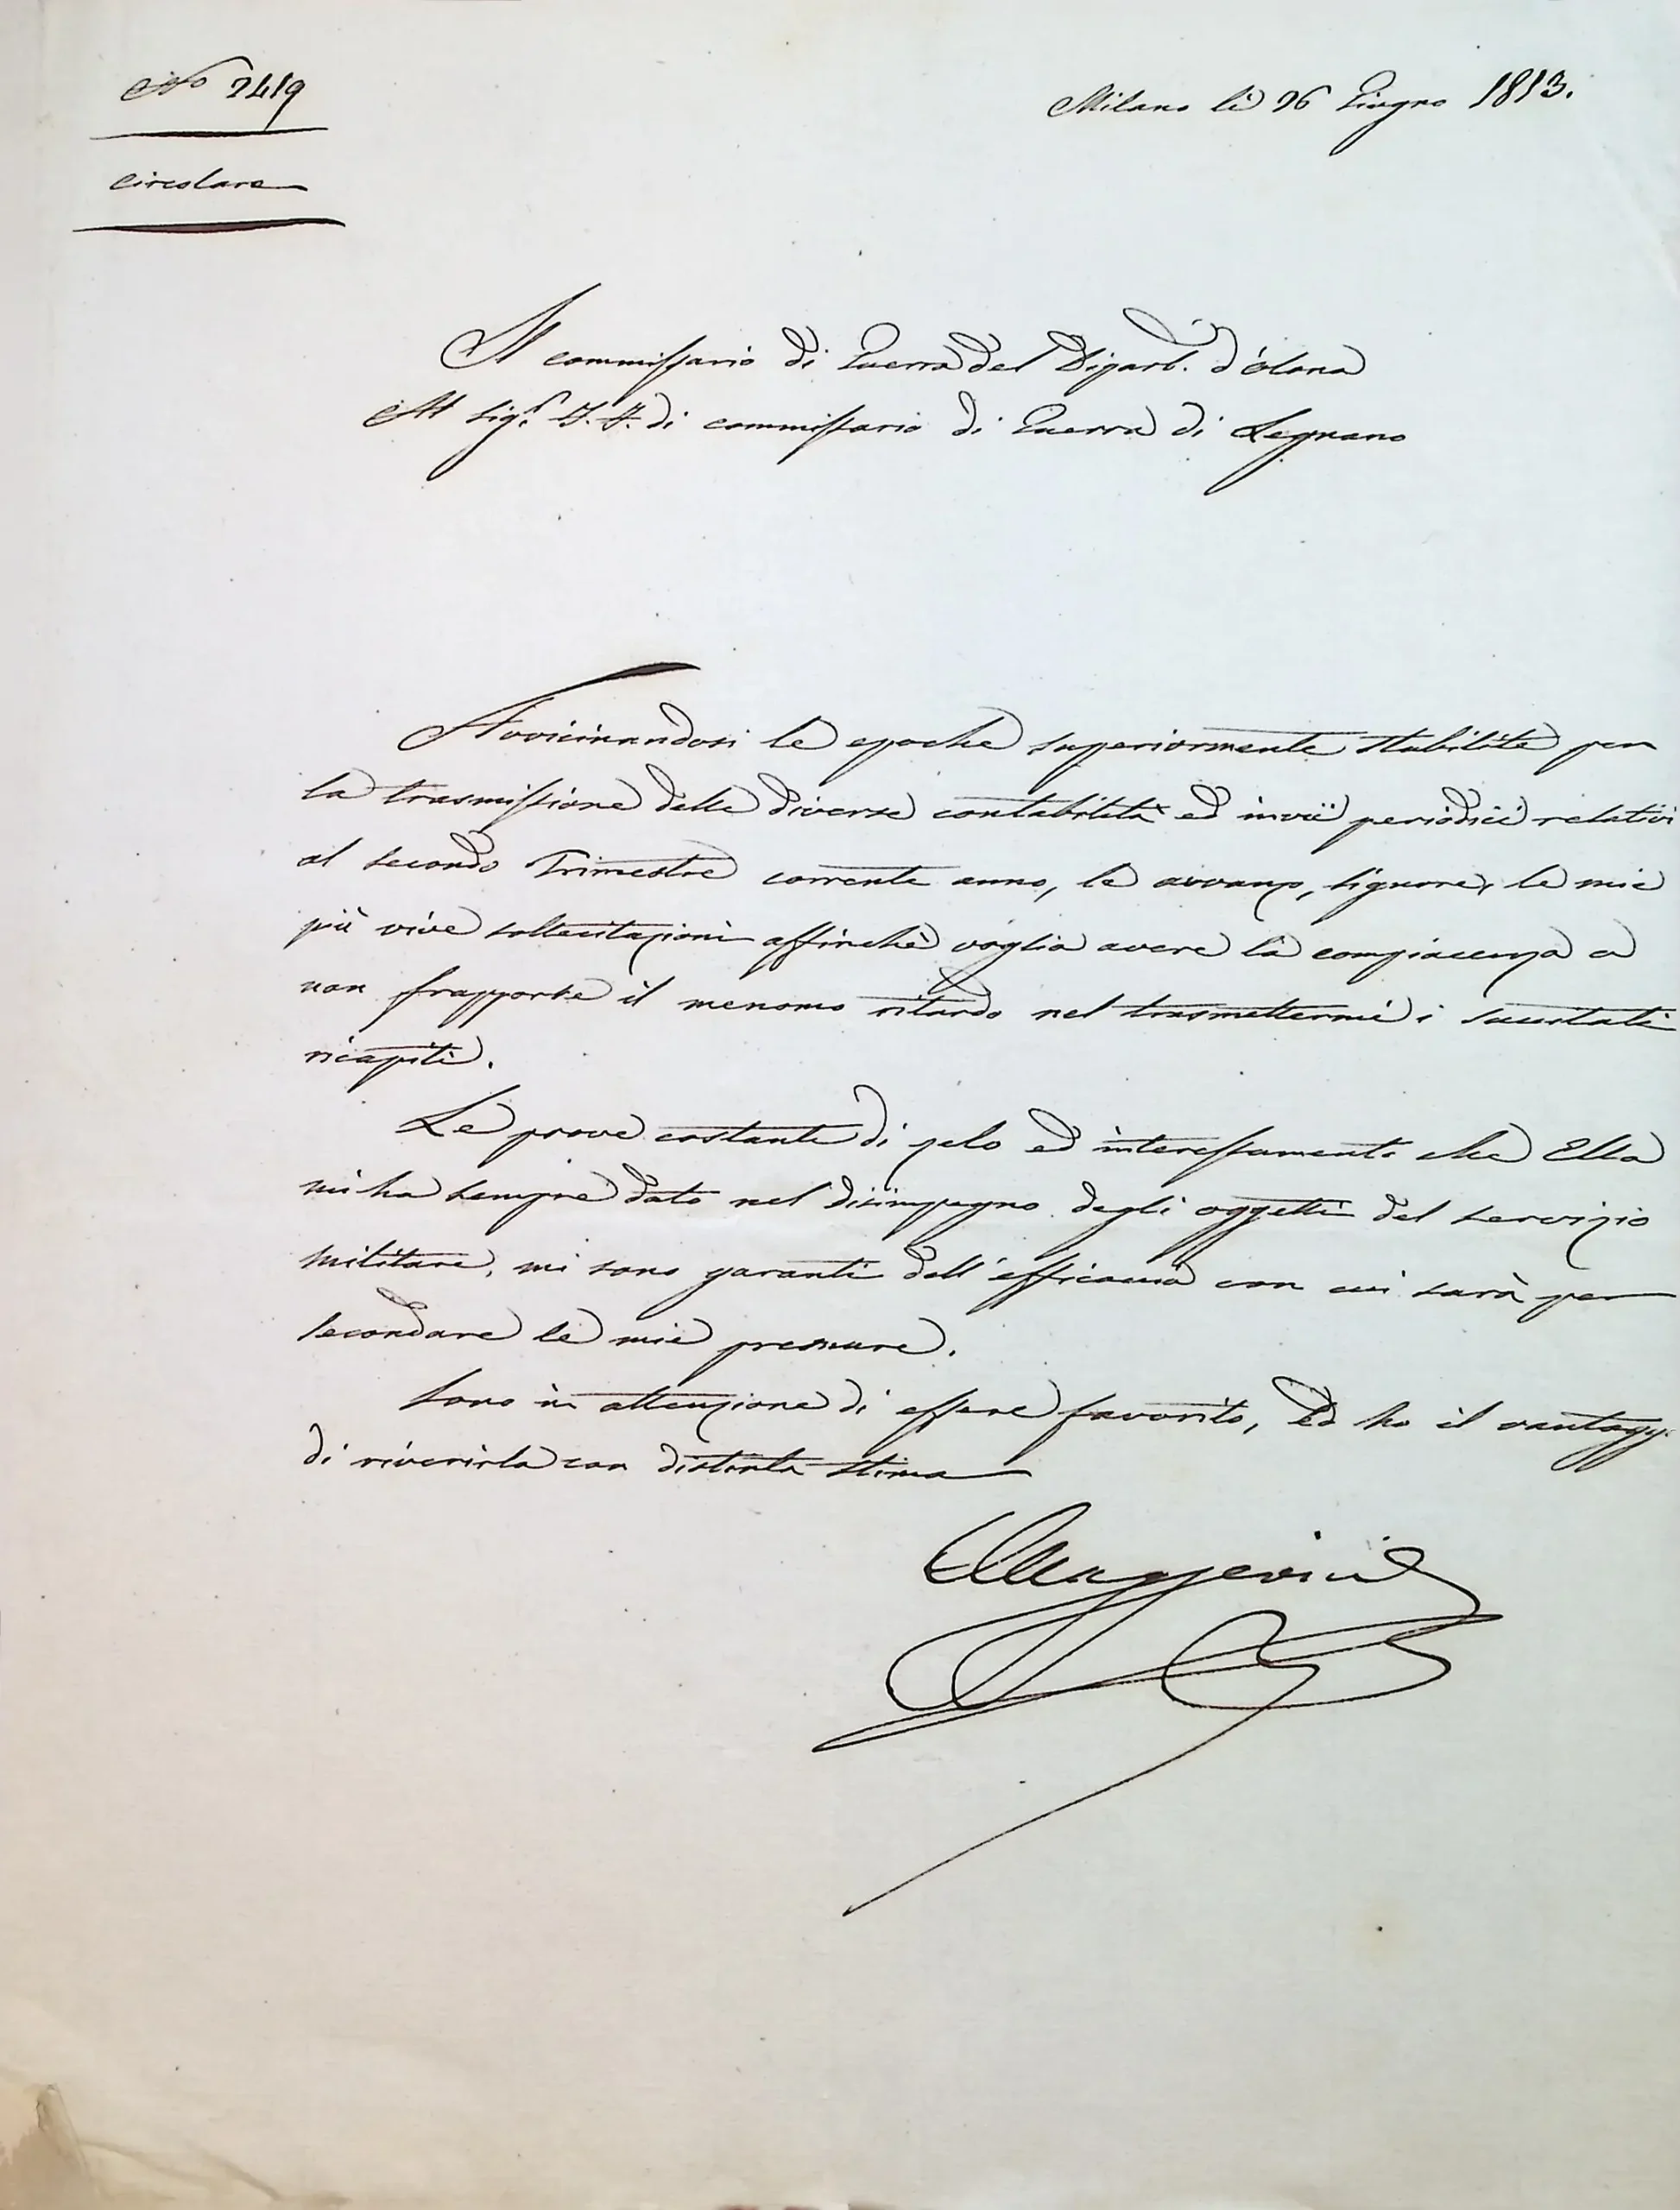 No 2419
Circolare
Milano li 26 Giugno 1813.
Il commissario di Guerra del Dipart. d'Olona
Al Sig.r F.F. di commissario di Guerra di Legnano
Avvicinandosi le epoche superiormente stabilite per
la trasmissione delle diverse contabilità ed invii periodici relativi
al secondo Trimestre corrente anno, le avvanzo, Signore, le mie
più vive sollecitazioni affinchè voglia avere la compiacenza a
non frapporre il menomo ritardo nel trasmettermi i succitati
ricapiti.
Le prove costanti di zelo ed interessamento che Ella
mi ha sempre dato nel disimpegno degli oggetti del servizio
militare, mi sono garanti dell'efficacia con cui sarà per
secondare le mie premure.
Sono in attenzione di essere favorito, ed ho il vantagg
di riverirla con distinta stima